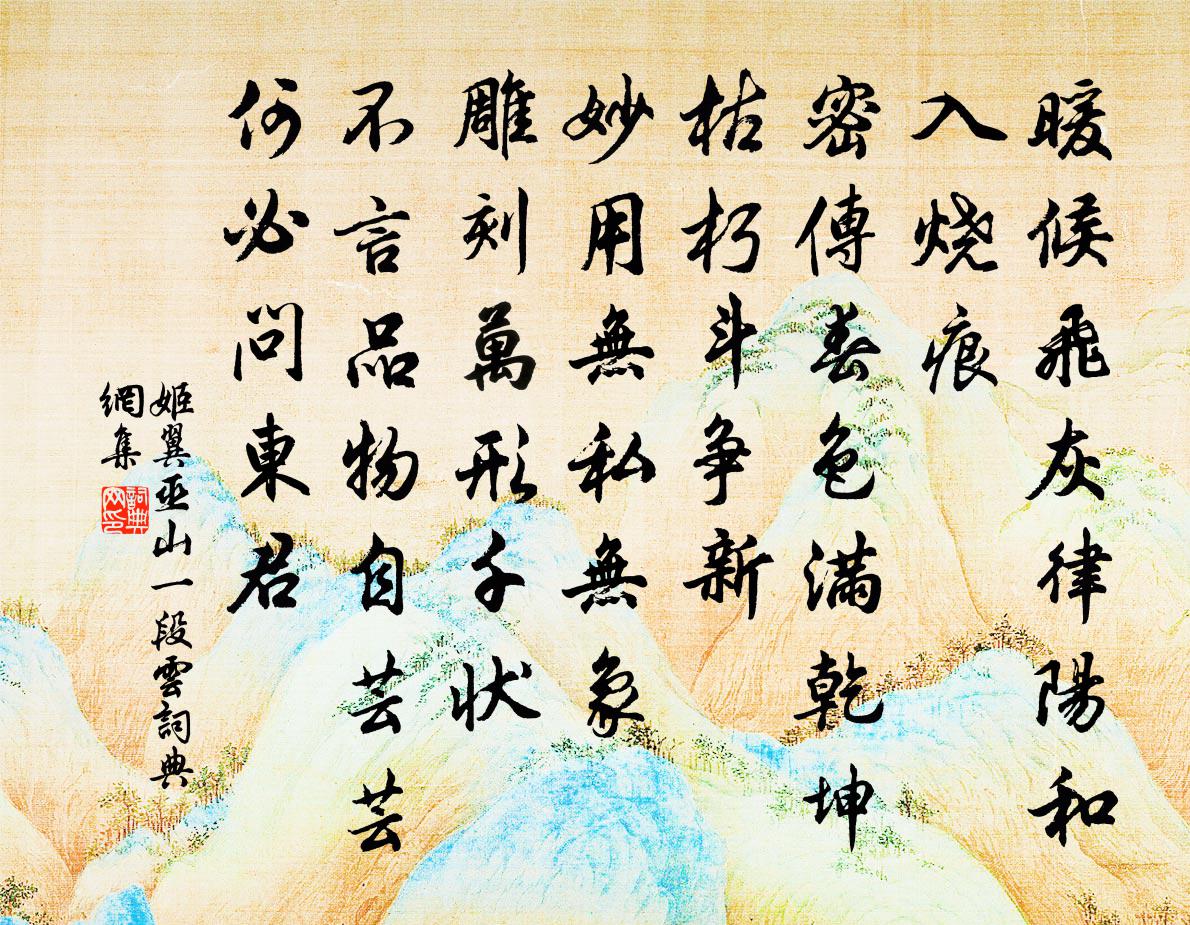 暖候飛灰律陽和
入烧痕
密傳春色滿乾坤
枯朽斗争新
妙用無私無象
雕刻萬形千狀
不言品物自芸芸
何必問東君
姬翼巫山一段雲詞典
網集
詞典
网印